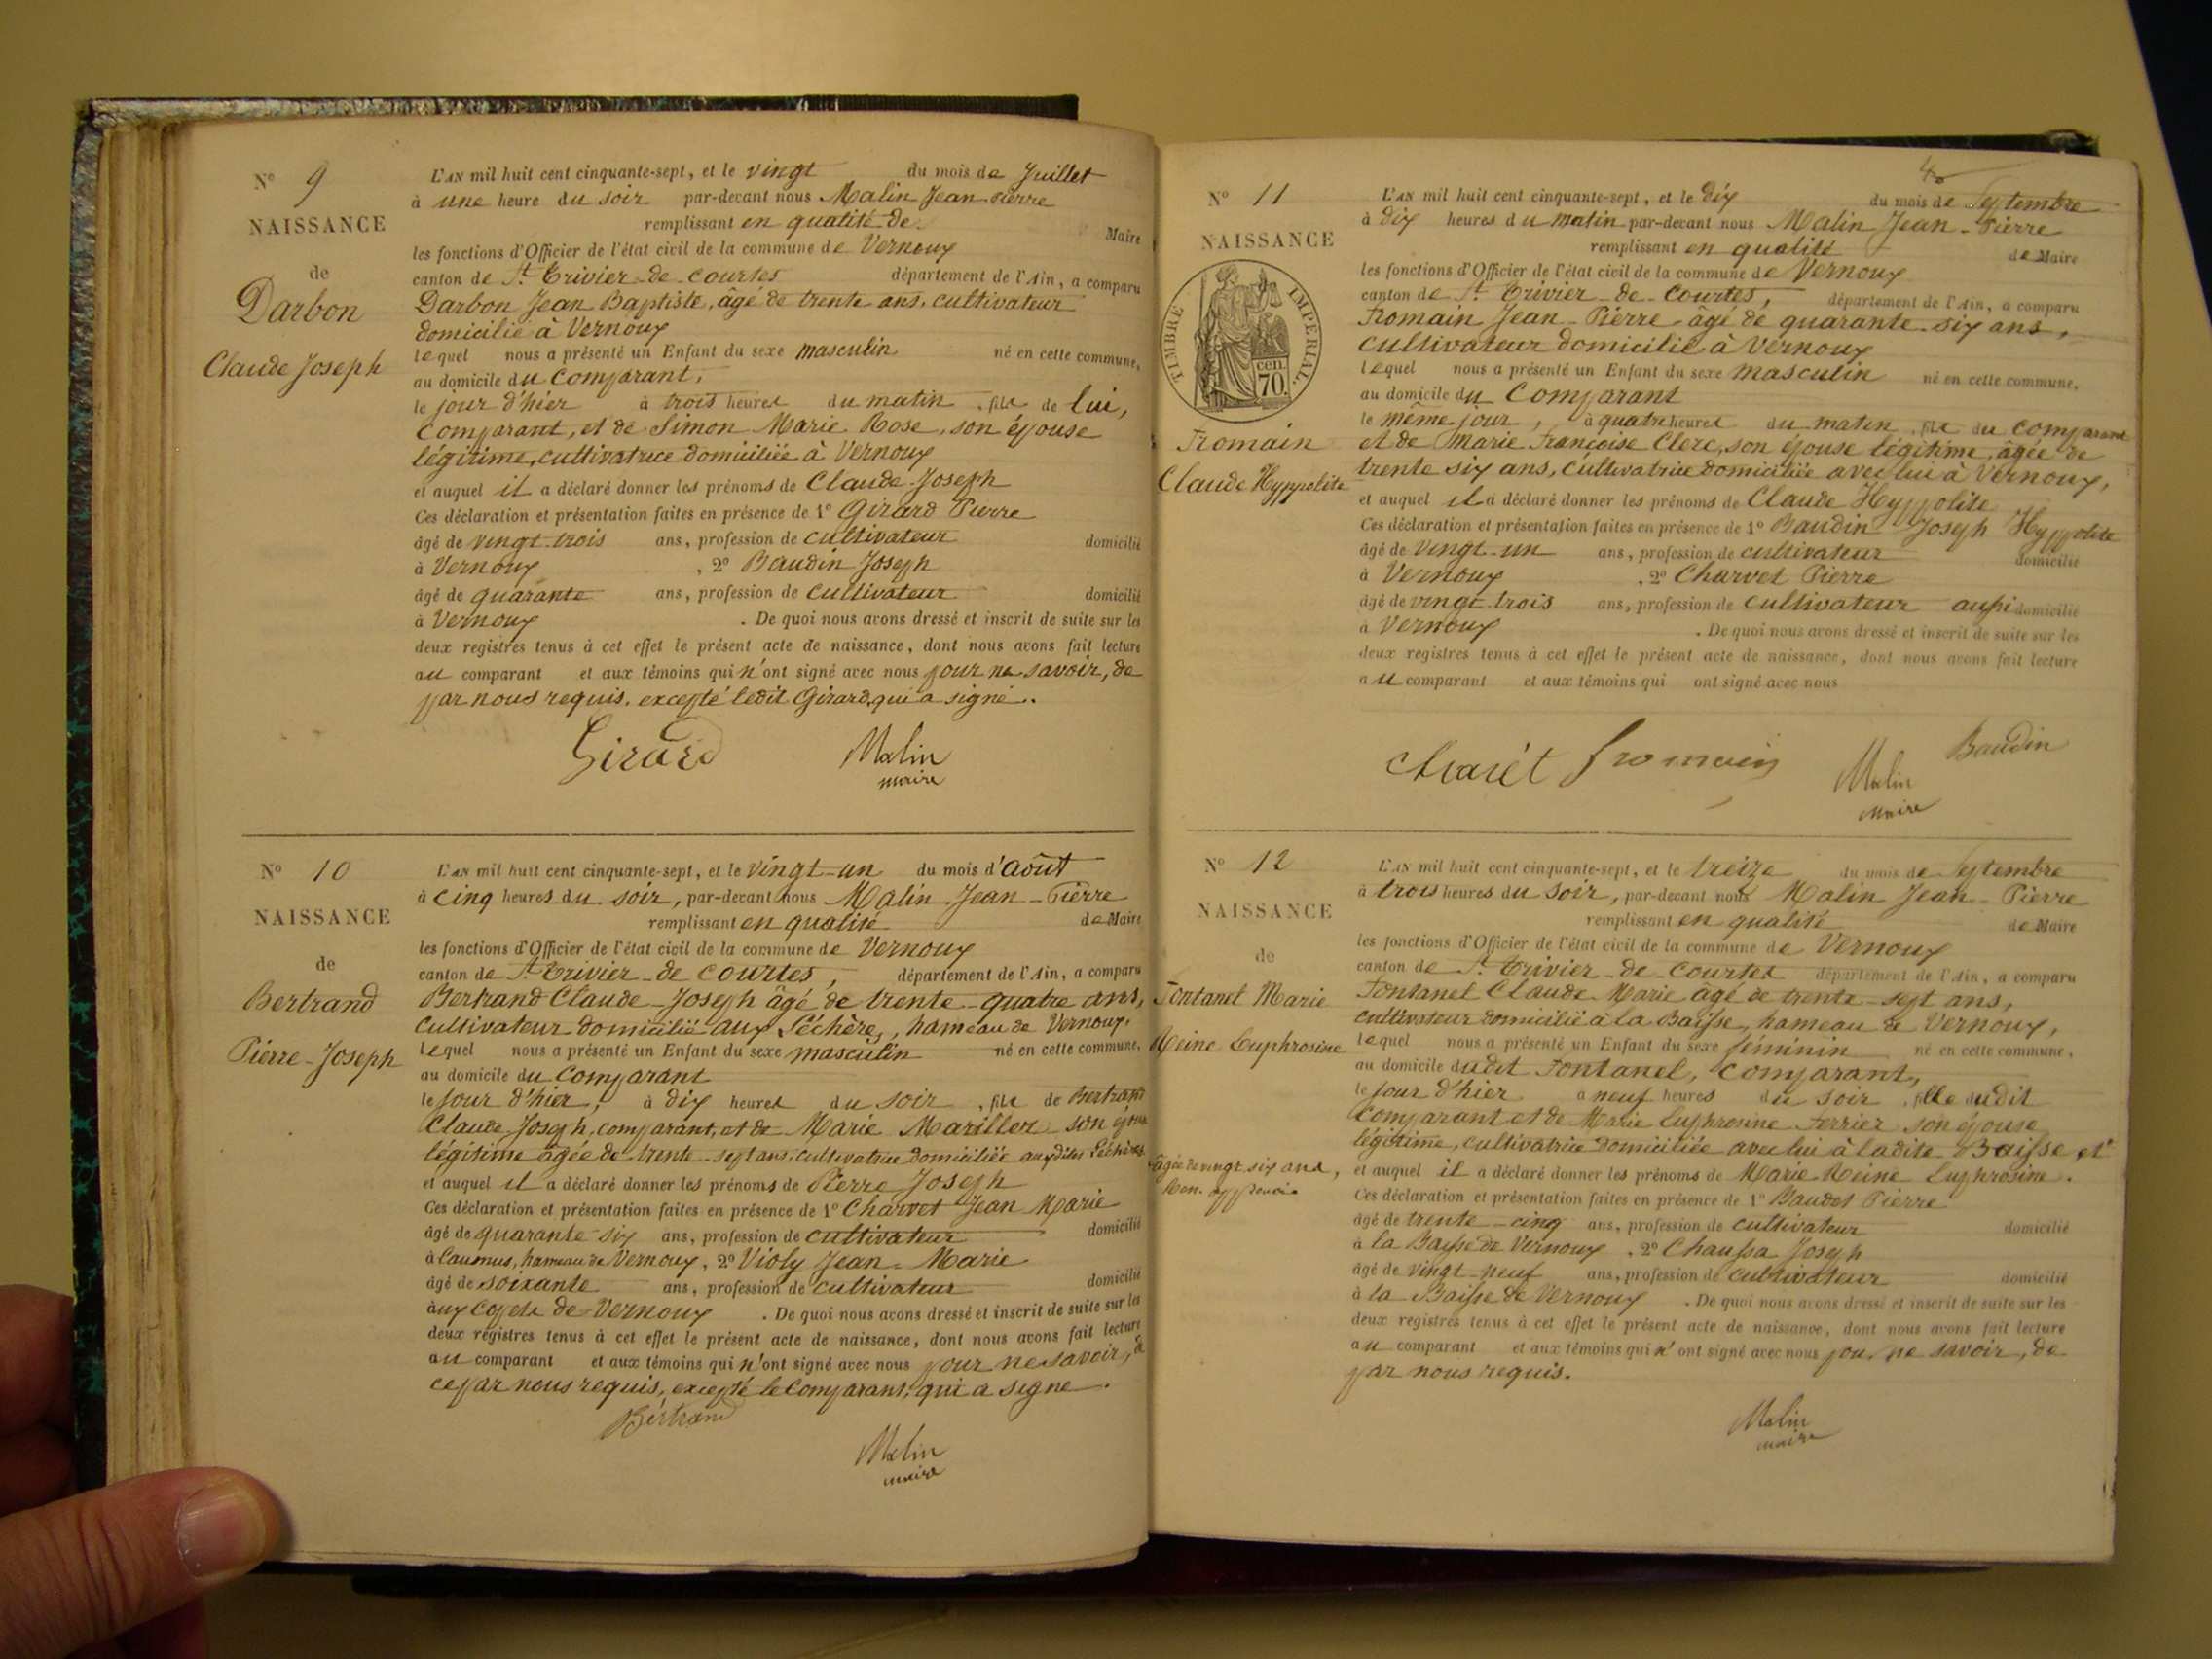 N° 9
NAISSANCE
de
Darbon
Claude Joseph
L'AN mil huit cent cinquante-sept, et le vingt du mois de Juillet
à une heure du soir par-devant nous Malin Jean Pierre
remplissant en qualité de Maire
les fonctions d'Officier de l'état civil de la commune de Vernoux
canton de St. Trivier-de-courtes département de l'Ain, a comparu
Darbon Jean Baptiste, âgé de trente ans, cultivateur
domicilié à Vernoux
lequel nous a présenté un Enfant du sexe masculin né en cette commune,
au domicile du comparant,
le jour d'hier à trois heures du matin, fils de lui,
comparant, et de Simon Marie Rose, son épouse
légitime, cultivatrice domiciliée à Vernoux
et auquel il a déclaré donner les prénoms de Claude Joseph
Ces déclaration et présentation faites en présence de 1° Girard Pierre
âgé de vingt-trois ans, profession de cultivateur domicilié
à Vernoux, 2° Baudin Joseph
âgé de quarante ans, profession de cultivateur domicilié
à Vernoux. De quoi nous avons dressé et inscrit de suite sur les
deux registres tenus à cet effet le présent acte de naissance, dont nous avons fait lecture
au comparant et aux témoins qui n'ont signé avec nous pour ne savoir, de
par nous requis, excepté ledit Girard, qui a signé.
Girard Malin
maire
N° 10
NAISSANCE
de
Bertrand
Pierre-Joseph
L'AN mil huit cent cinquante-sept, et le vingt-un du mois d'août
à cinq heures du soir, par-devant nous Malin Jean-Pierre
remplissant en qualité de Maire
les fonctions d'Officier de l'état civil de la commune de Vernoux
canton de St. Trivier-de-courtes, département de l'Ain, a comparu
Bertrand Claude-Joseph âgé de trente-quatre ans,
cultivateur domicilié aux Séchères, hameau de Vernoux,
lequel nous a présenté un Enfant du sexe masculin né en cette commune,
au domicile du comparant
le jour d'hier, à dix heures du soir, fils de Bertrand
Claude Joseph, comparant, et de Marie Mariller son épouse
légitime âgée de trente-sept ans, cultivatrice domiciliée auxdites Séchères
et auquel il a déclaré donner les prénoms de Pierre Joseph
Ces déclaration et présentation faites en présence de 1° Charvet Jean Marie
âgé de quarante-six ans, profession de cultivateur domicilié
à hameau de Vernoux, 2° Violy Jean-Marie
âgé de soixante ans, profession de cultivateur domicilié
aux de Vernoux. De quoi nous avons dressé et inscrit de suite sur les
deux registres tenus à cet effet le présent acte de naissance, dont nous avons fait lecture
au comparant et aux témoins qui n'ont signé avec nous pour ne savoir, de
ce par nous requis, excepté le comparant, qui a signé.
Bertrand
Malin
maire
N° 11
NAISSANCE
TIMBRE IMPERIAL.
70 cen.
Fromain
Claude Hyppolite
L'AN mil huit cent cinquante-sept, et le dix du mois de Septembre
à dix heures du matin par-devant nous Malin Jean-Pierre
remplissant en qualité de Maire
les fonctions d'Officier de l'état civil de la commune de Vernoux
canton de St. Trivier-de-Courtes, département de l'Ain, a comparu
Fromain Jean-Pierre âgé de quarante-six ans,
cultivateur domicilié à Vernoux
lequel nous a présenté un Enfant du sexe masculin né en cette commune,
au domicile du comparant
le même jour, à quatre heures du matin, fils du comparant
et de Marie Françoise Clerc, son épouse légitime, âgée de
trente six ans, cultivatrice domiciliée avec lui à Vernoux,
et auquel il a déclaré donner les prénoms de Claude Hyppolite
Ces déclaration et présentation faites en présence de 1° Baudin Joseph Hyppolite
âgé de vingt-un ans, profession de cultivateur domicilié
à Vernoux, 2° Charvet Pierre
âgé de vingt-trois ans, profession de cultivateur aussi domicilié
à Vernoux. De quoi nous avons dressé et inscrit de suite sur les
deux registres tenus à cet effet le présent acte de naissance, dont nous avons fait lecture
au comparant et aux témoins qui ont signé avec nous
fromain Malin Baudin
maire
N° 12
NAISSANCE
de
Fontanel Marie
Reine Euphrosine
L'AN mil huit cent cinquante-sept, et le treize du mois de Septembre
à trois heures du soir, par-devant nous Malin Jean-Pierre
remplissant en qualité de Maire
les fonctions d'Officier de l'état civil de la commune de Vernoux
canton de St. Trivier-de-Courtes département de l'Ain, a comparu
Fontanel Claude-Marie âgé de trente-sept ans,
cultivateur domicilié à la Baisse, hameau de Vernoux,
lequel nous a présenté un Enfant du sexe féminin né en cette commune,
au domicile dudit Fontanel, comparant,
le jour d'hier à neuf heures du soir, fille dudit
comparant et de Marie Euphrosine Ferrier son épouse
légitime, cultivatrice domiciliée avec lui à ladite Baisse et
âgée de vingt six ans,
et auquel il a déclaré donner les prénoms de Marie Reine Euphrosine.
Ces déclaration et présentation faites en présence de 1° Baudet Pierre
âgé de trente-cinq ans, profession de cultivateur domicilié
à la Baisse de Vernoux, 2° Chaussa Joseph
âgé de vingt-neuf ans, profession de cultivateur domicilié
à la Baisse de Vernoux. De quoi nous avons dressé et inscrit de suite sur les
deux registres tenus à cet effet le présent acte de naissance, dont nous avons fait lecture
au comparant et aux témoins qui n'ont signé avec nous pour ne savoir, de
par nous requis.
Malin
maire